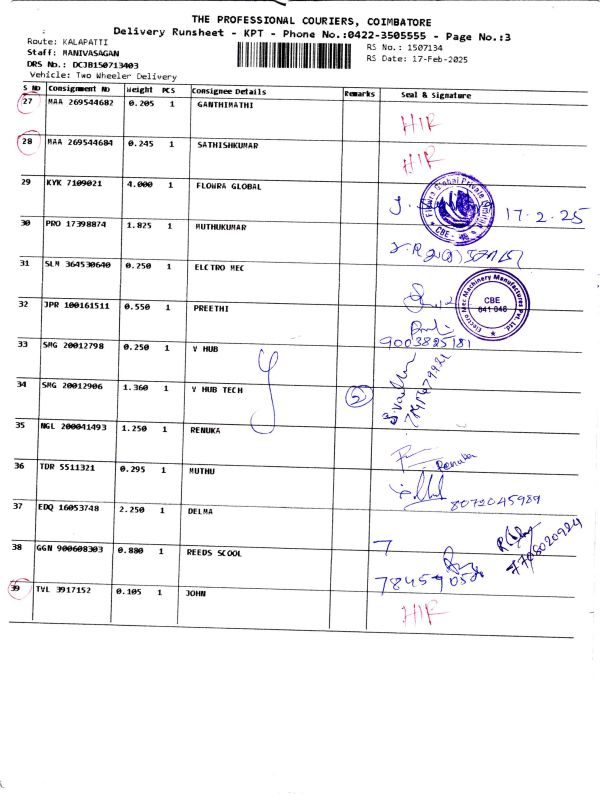 THE PROFESSIONAL COURIERS, COIMBATORE
Delivery Runsheet - KPT - Phone No.:0422-3505555 - Page No.:3
Route: KALAPATTI
RS No.: 1507134
Staff: MANIVASAGAN
RS Date: 17-Feb-2025
DRS No.: DCJB150713403
Vehicle: Two Wheeler Delivery
S NO Consignment No Weight PCS Consignee Details Remarks Seal & Signature
27 MAA 269544682 0.205 1 GANTHIMATHI HIR
28 MAA 269544684 0.245 1 SATHISHKUMAR HIR
29 KYK 7109021 4.000 1 FLOWRA GLOBAL Flowra Global Private Limited CBE 17.2.25
30 PRO 17398874 1.825 1 MUTHUKUMAR
31 SLM 364530640 0.250 1 ELCTRO MEC Electro Mec Machinery Manufactures Pvt. Ltd. CBE 641 048
32 JPR 100161511 0.550 1 PREETHI 9003825181
33 SMG 20012798 0.250 1 V HUB
34 SMG 20012906 1.360 1 V HUB TECH 2
35 NGL 200041493 1.250 1 RENUKA Renuka
36 TDR 5511321 0.295 1 MUTHU
37 EDQ 16053748 2.250 1 DELMA
38 GGN 900608303 0.880 1 REEDS SCOOL
39 TVL 3917152 0.105 1 JOHN HIR